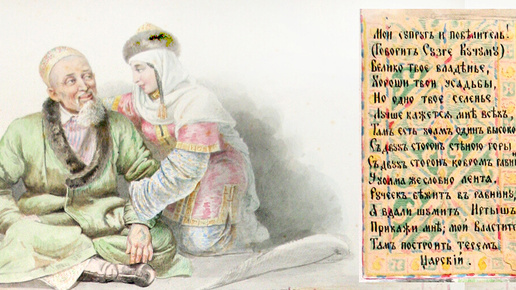 Мой супругъ и повѣлитель!
(Говоритъ Сузге Кучуму)
Велико твое владѣнье,
Хороши твои усадьбы,
Но одно твое селенье
Лучше кажется мнѣ всѣхъ,
Тамъ есть холмъ одинъ высоко
Съ двухъ сторонъ стѣною горы,
Съ двухъ сторонъ ковромъ равни
У холма же словно лента.
Ручеекъ бѣжитъ въ равнину,
А вдали шумитъ Иртышъ
Прикажи мнѣ, мой властите
Тамъ построить теремъ
Царскій.